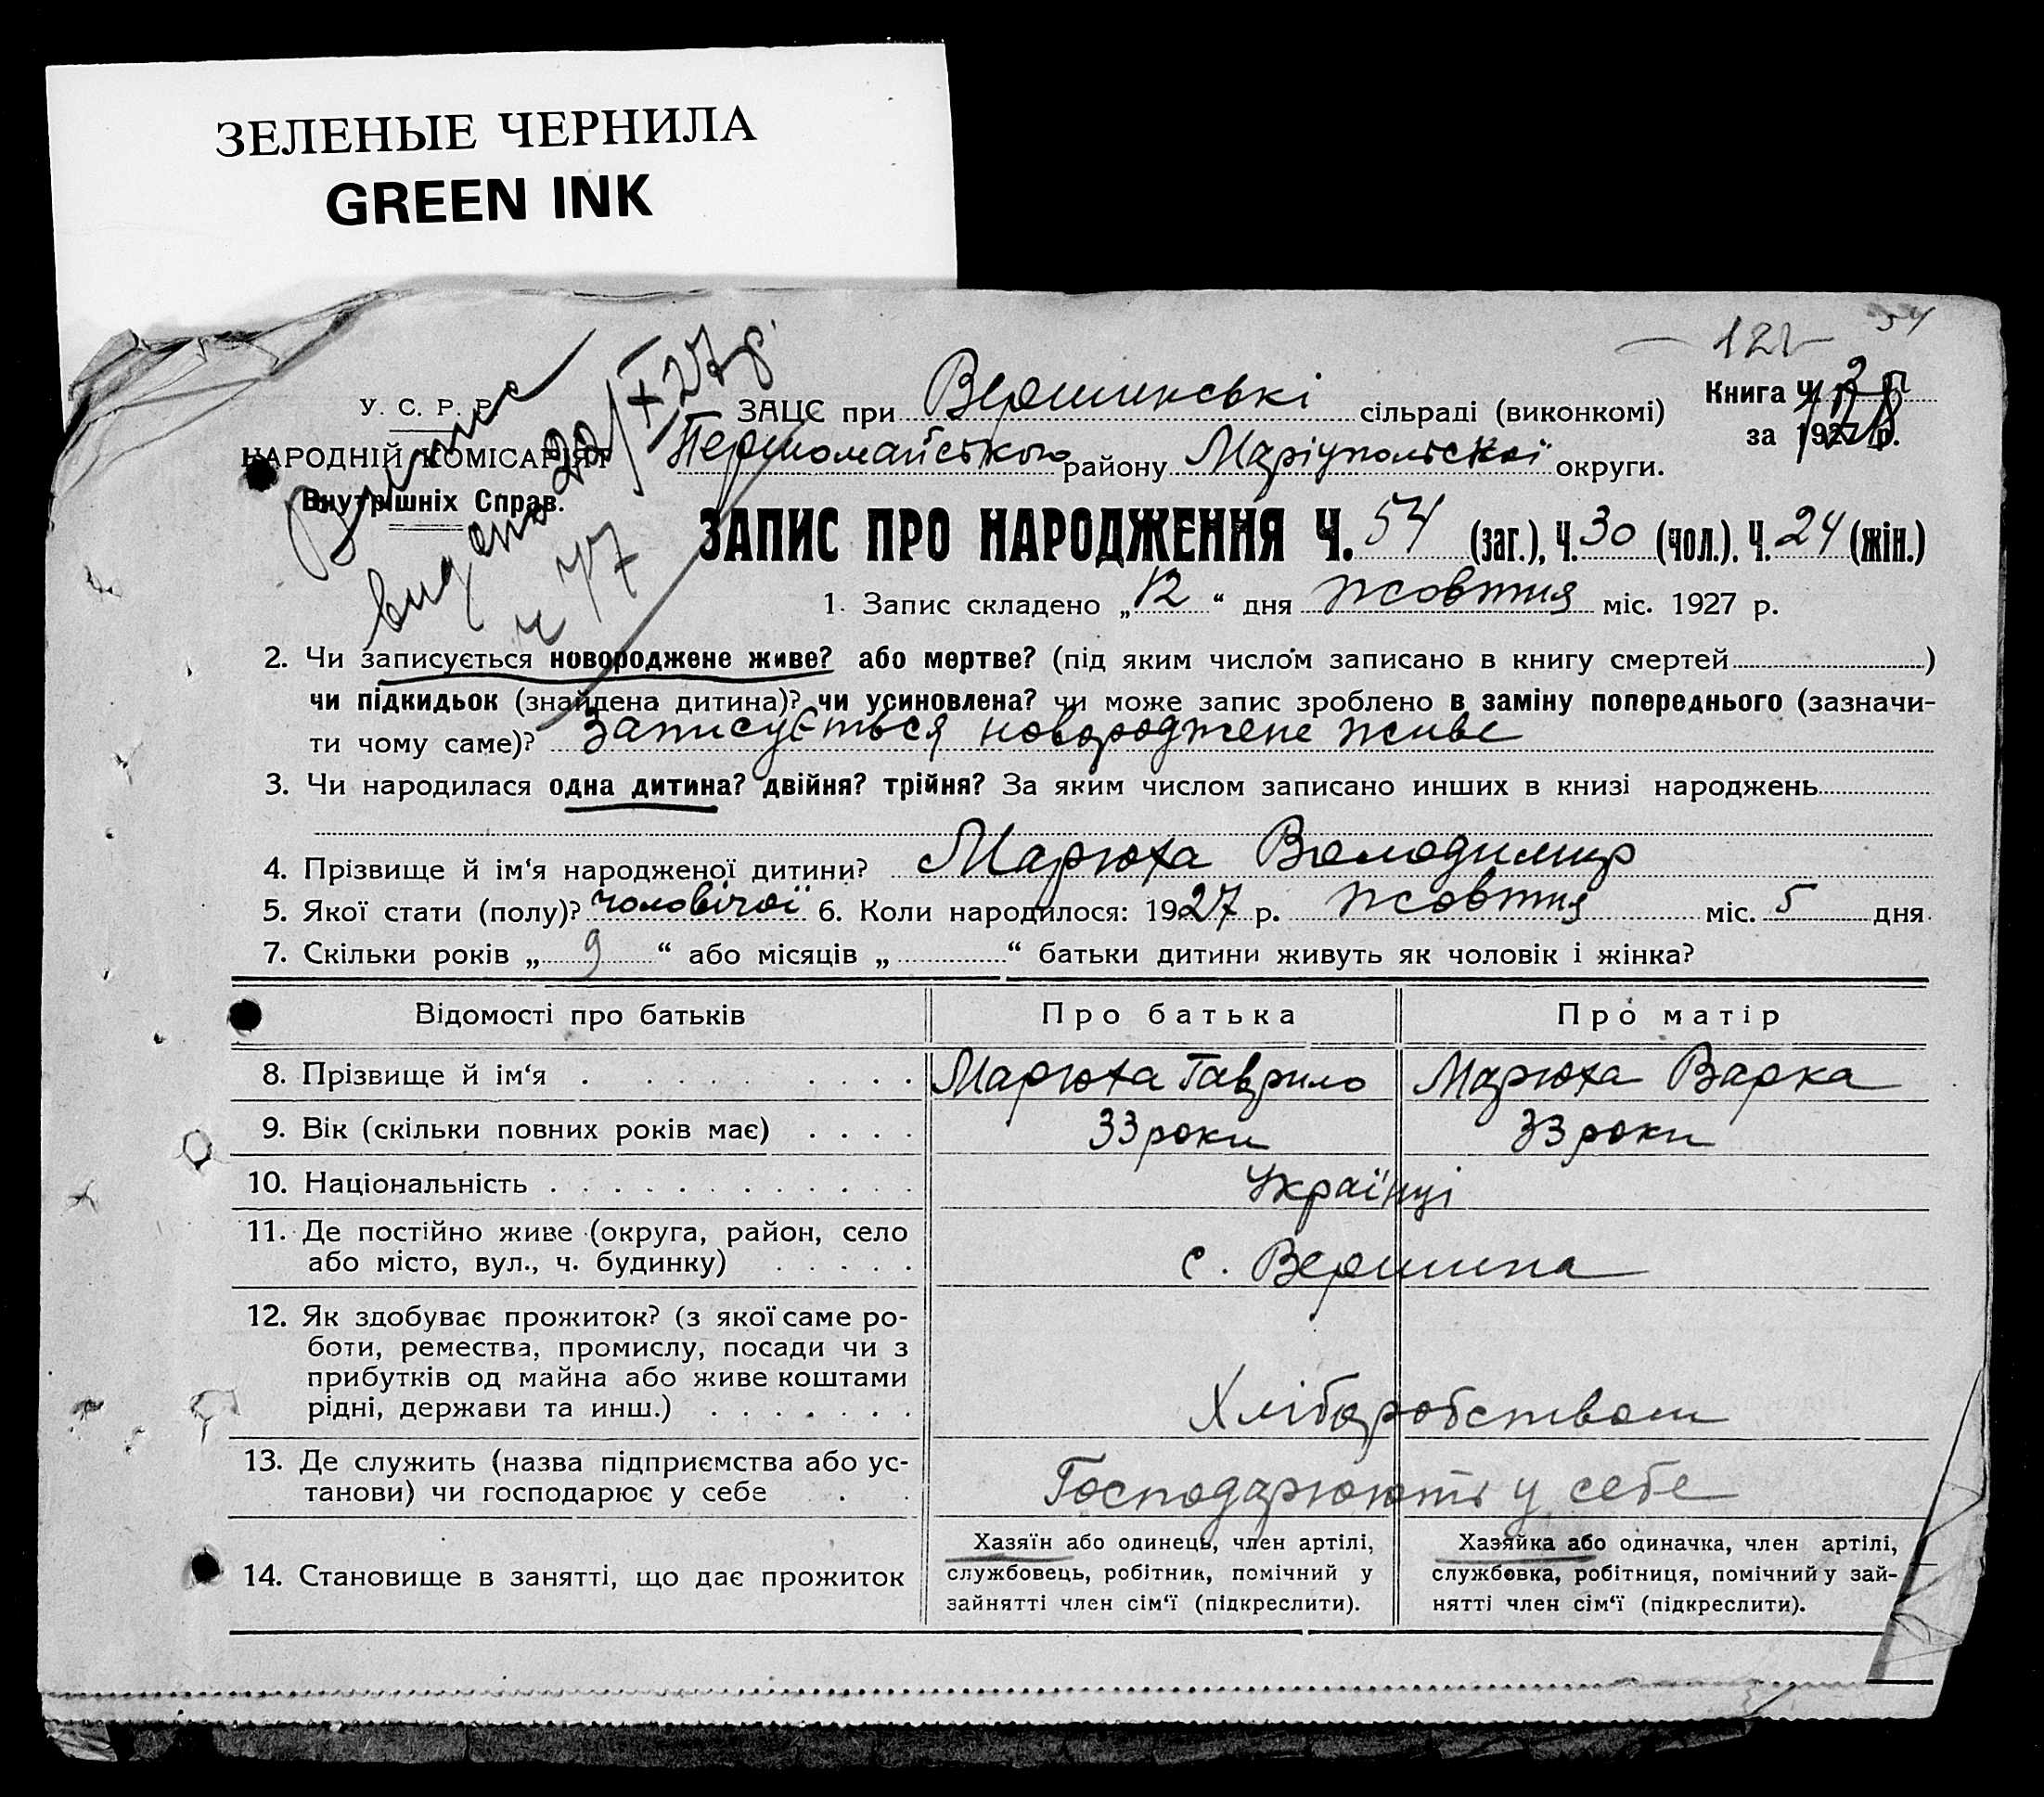 ЗЕЛЕНЫЕ ЧЕРНИЛА
GREEN INK
122 54
У. С. Р. Р.
НАРОДНІЙ КОМІСАРІЯТ
Внутрішніх Справ.
Виписка
видано 20/X 27 р
ч 77
Книга Ч.
за 1927 р.
ЗАЦС при Вершинські сільраді (виконкомі)
Першомайського району Маріупольскої округи.
ЗАПИС ПРО НАРОДЖЕННЯ Ч. 54 (заг.), Ч. 30 (чол.). Ч. 24 (жін.)
1. Запис складено „ 12 “ дня жовтня міс. 1927 р.
2. Чи записується новороджене живе? або мертве? (під яким числом записано в книгу смертей )
чи підкидьок (знайдена дитина)? чи усиновлена? чи може запис зроблено в заміну попереднього (зазначи-
ти чому саме)? Записується новороджене живе
3. Чи народилася одна дитина? двійня? трійня? За яким числом записано инших в книзі народжень
4. Прізвище й ім‘я народженої дитини? Марюха Володимир
5. Якої стати (полу)? чоловічої 6. Коли народилося: 1927 р. жовтня міс. 5 дня
7. Скільки років „ 9 “ або місяців „ “ батьки дитини живуть як чоловік і жінка?
Відомості про батьків Про батька Про матір
8. Прізвище й ім‘я Марюха Гаврило Марюха Варка
9. Вік (скільки повних років має) 33 роки 33 роки
10. Національність Українці
11. Де постійно живе (округа, район, село
або місто, вул., ч. будинку) с. Вершина
12. Як здобуває прожиток? (з якої саме ро-
боти, ремества, промислу, посади чи з
прибутків од майна або живе коштами
рідні, держави та инш.) Хліборобством
13. Де служить (назва підприємства або ус-
танови) чи господарює у себе Господарюють у себе
14. Становище в занятті, що дає прожиток
Хазяїн або одинець, член артілі,
службовець, робітник, помічний у
зайнятті член сім‘ї (підкреслити).
Хазяйка або одиначка, член артілі,
службовка, робітниця, помічний у зай-
нятті член сім‘ї (підкреслити).